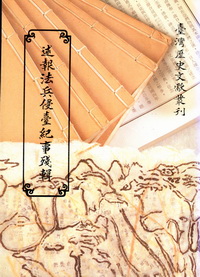 臺灣歷史文獻叢刊
述報法兵侵臺紀事殘輯